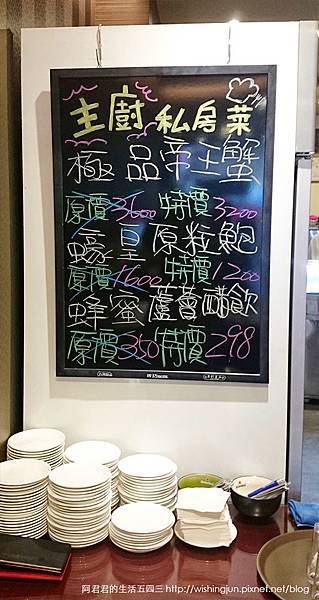 主廚私房菜
極品帝王蟹
原價3600特價3200
蠔皇原粒鮑
原價1600特價1200
蜂蜜蘆薈醋飲
原價350特價298
阿君君的生活五四三 http://wishingjun.pixnet.net/blog